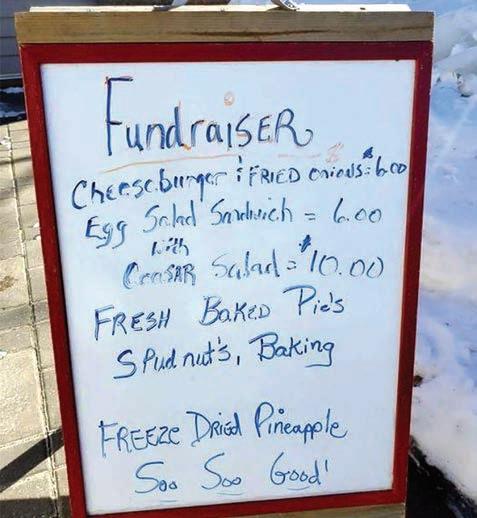 FundraiSER
Cheeseburger & FRIED onions = $6.00
Egg Salad Sandwich = 6.00
with
CeaSAR Salad = $10.00
FRESH BaKED Pie's
SPud nut's, Baking
FREEZE DRied Pineapple
Soo Soo Good!